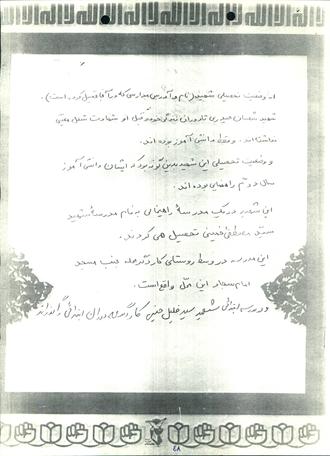 از وضعیت تحصیلی شهید (نام و آدرس مدارسی که در آنها تحصیل کرده است).
شهید شعبان حیدری تا دوران قبل از شهادت شغل معینی
نداشته اند. و فقط دانش آموز بوده اند.
و وضعیت تحصیلی این شهید بدین گونه بود که ایشان دانش آموز
سال دوم راهنمایی بوده اند.
این شهید در یک مدرسهٔ راهنمایی به نام مدرسهٔ شهید
سید مصطفی خمینی تحصیل می کردند.
این مدرسه در وسط روستای کاردگر محله جنب مسجد
امام سجاد این محل واقع است.
و در مدرسه ابتدائی شهید سید خلیل حسینی کاردگر محله دوران ابتدائی را گذراند
۴۸